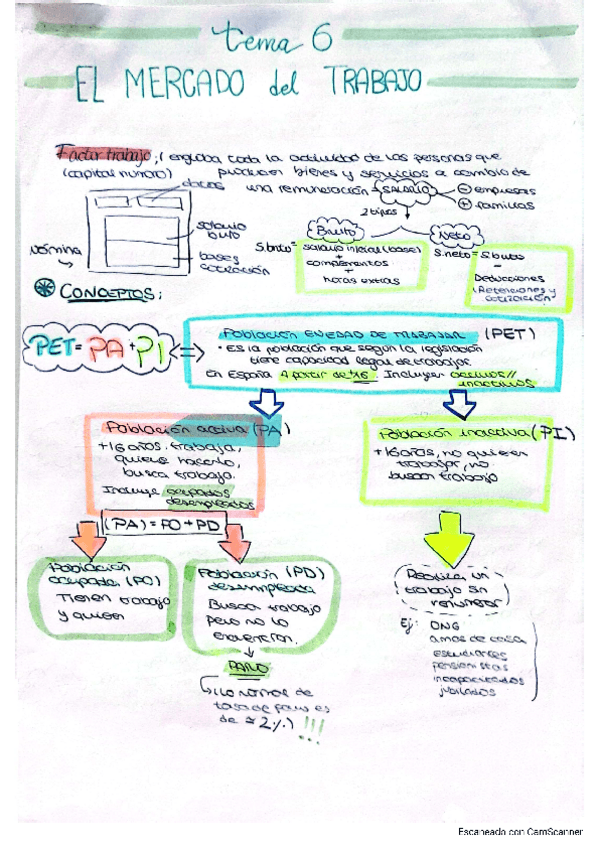 tema 6
EL MERCADO del TRABAJO
Factor trabajo; (engloba toda la actividad de las personas que
(capital humano) producen bienes y servicios a cambio de
una remuneración → SALARIO
⊖ empresas
⊕ familias
datos
salario
bruto
bases
cotización
nómina
2 tipos
Bruto
S.bruto = salario inicial (base)
+
complementos
+
horas extras
Neto
S.neto = S.bruto
-
Deducciones
(Retenciones y
cotización)
CONCEPTOS:
PET = PA + PI <=>
Población EN EDAD DE TRABAJAR (PET)
· Es la población que según la legislación
tiene capacidad legal de trabajar.
En España A partir de 16. Incluye: activos //
inactivos
Población activa (PA)
+16 años, trabaja,
quiere hacerlo,
busca trabajo.
Incluye ocupados
desempleados
(PA) = PO + PD
Población inactiva (PI)
+16 años, no quieren
trabajar, no
buscan trabajo
Población
ocupada (PO)
Tienen trabajo
y quieren
Población (PD)
desempleada
Busca trabajo
pero no lo
encuentran.
PARO
(Lo normal de
tasa de paro es
de ≃ 2%) !!!
Realiza un
trabajo sin
remunerar
Ej: ONG
amas de casa
estudiantes
pensionistas
incapacitados
jubilados
Escaneado con CamScanner